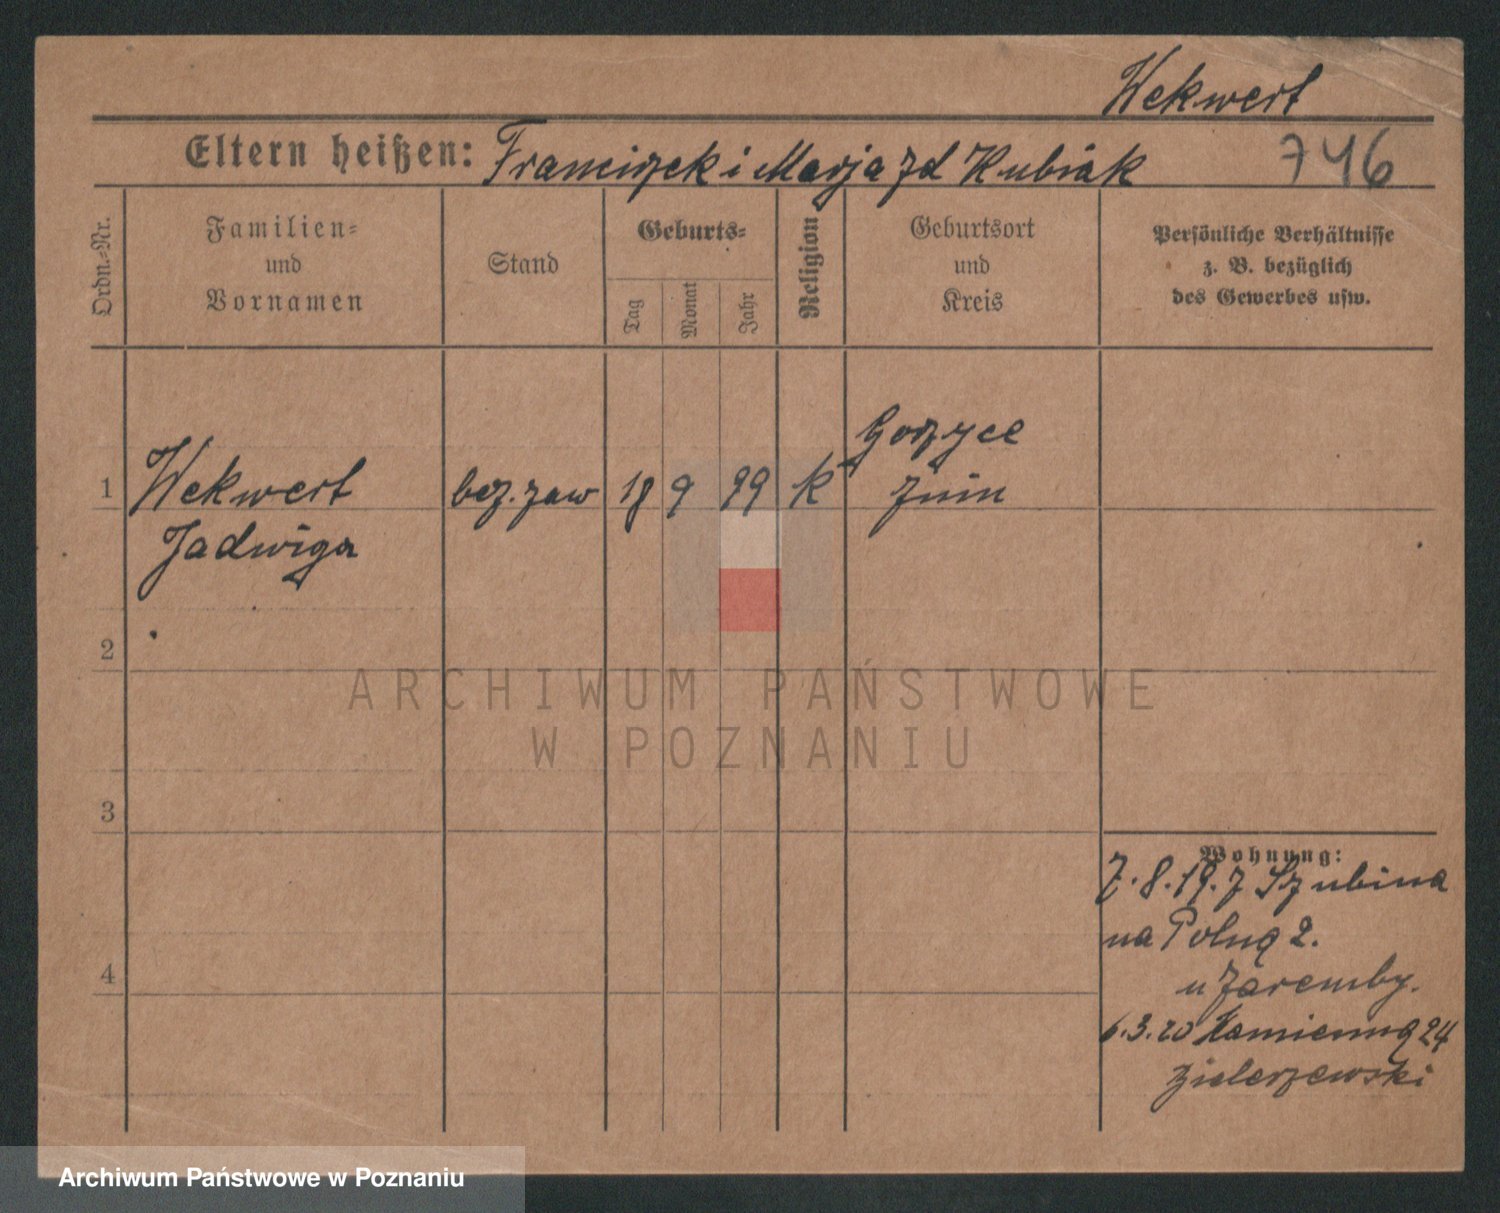 Wekwert
Eltern heißen: Franciszek i Marja zd Kubiak
746
Ordn.-Nr.
Familien-
und
Vornamen
Stand
Geburts-
Tag
Monat
Jahr
Religion
Geburtsort
und
Kreis
Persönliche Verhältnisse
z. B. bezüglich
des Gewerbes usw.
1
Wekwert
Jadwiga
bez. zaw
18 9 99
k
Gorzyce
Żnin
2
3
4
ARCHIWUM PAŃSTWOWE
W POZNANIU
Wohnung:
7.8.19. z Szubina
na Polną 2.
u Zaremby.
6.3.20 Kamienną 24
Zielerzewski
Archiwum Państwowe w Poznaniu